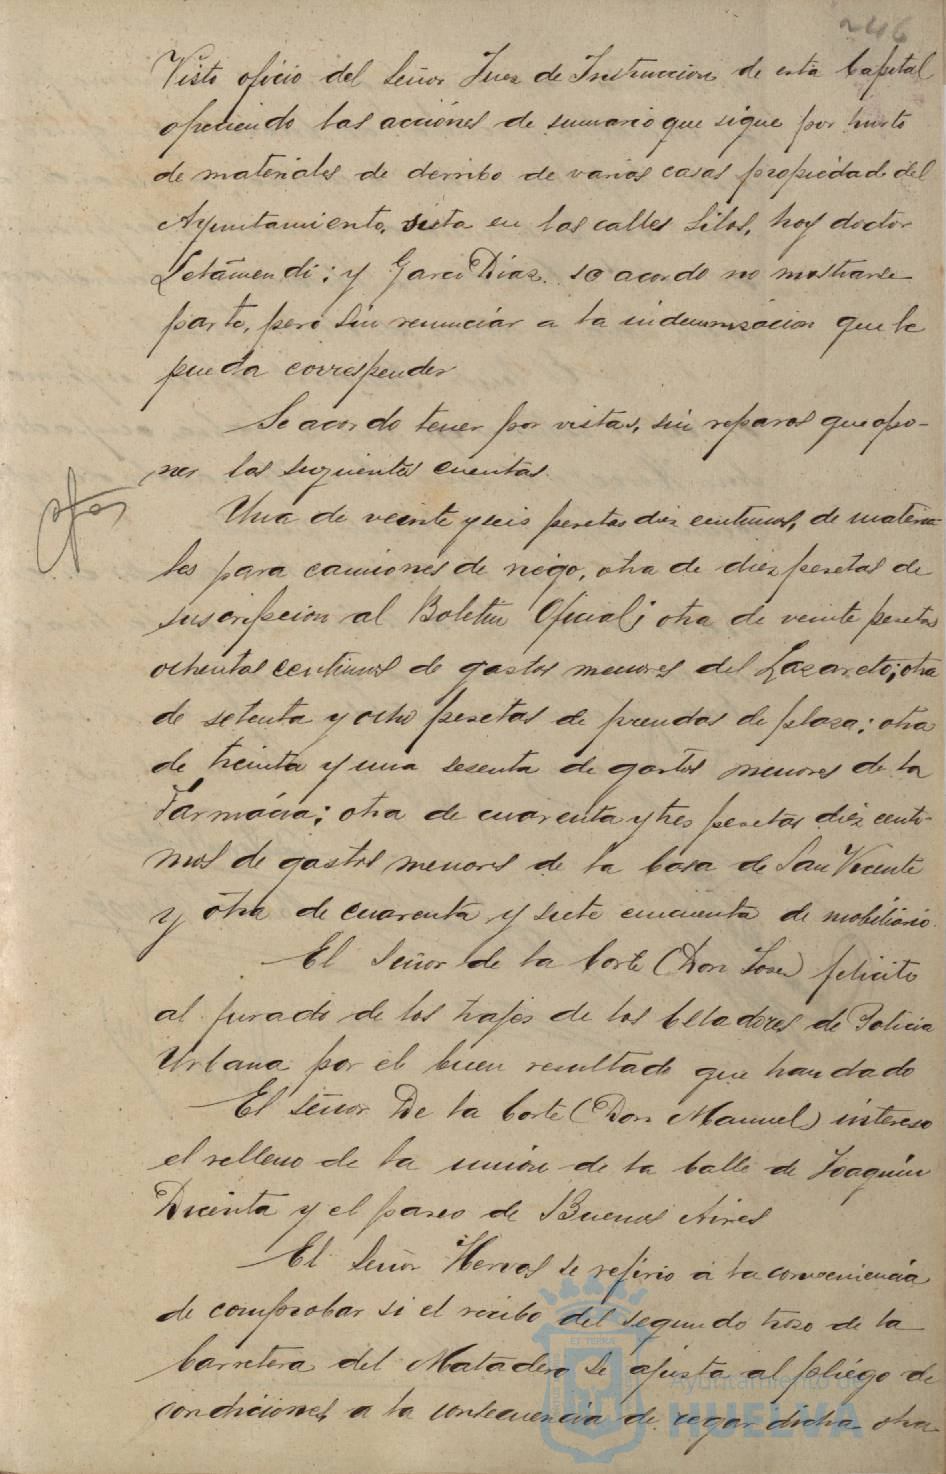 246
Visto oficio del Señor Juez de Instruccion de esta Capital
ofreciendo las acciones de sumario que sigue por hurto
de materiales de derribo de varias casas propiedad del
Ayuntamiento, sista en las calles Silos, hoy doctor
Letamendi; y Garci Diaz. se acordo no mostrarse
parte, pero sin renunciar a la indemnizacion que le
pueda corresponder
Se acordo tener por vistas, sin reparos que opo-
ner las siguientes cuentas.
Una de veinte y seis pesetas diez centimos, de materia-
les para camiones de riego, otra de diez pesetas de
suscripcion al Boletin Oficial; otra de veinte pesetas
ochentas centimos de gastos menores del Lazareto; otra
de setenta y ocho pesetas de prendas de plaza; otra
de treinta y una sesenta de gastos menores de la
Farmacia; otra de cuarenta y tres pesetas diez centi-
mos de gastos menores de la Casa de San Vicente
y otra de cuarenta y siete cincuenta de mobiliario.
El Señor de la Corte (Don Jose) felicito
al jurado de los trajes de los Celadores de Policia
Urbana por el buen resultado que han dado
El señor De la Corte (Don Manuel) intereso
el relleno de la union de la Calle de Joaquin
Dicenta y el paseo de Buenos Aires
El Señor Hervas se refirio a la conveniencia
de comprobar si el recibo del segundo trozo de la
Carretera del Matadero se ajusta al pliego de
condiciones a la consecuencia de dicha otra
Ayuntamiento de
HUELVA